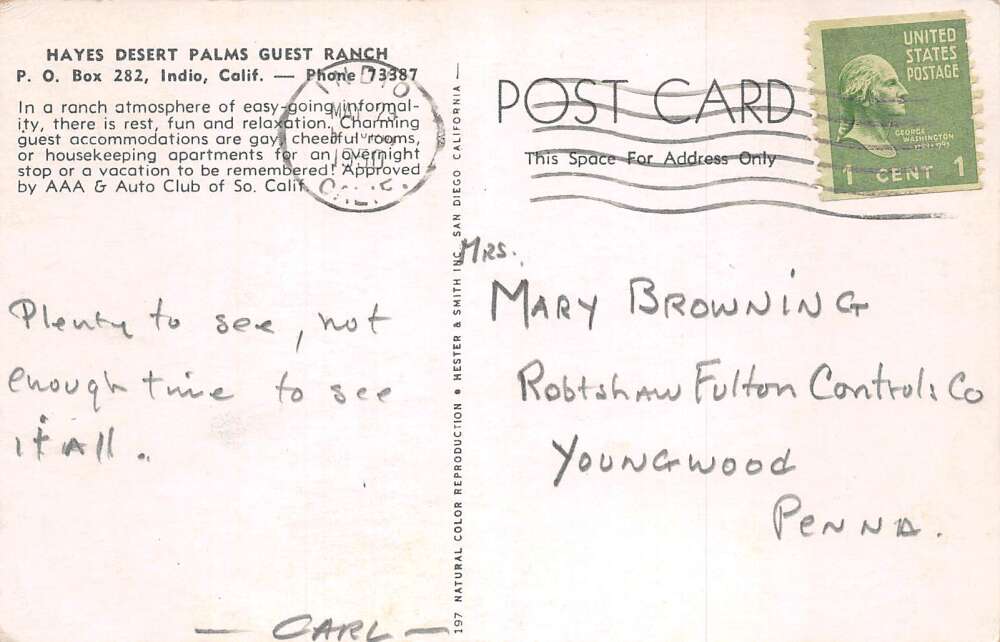 HAYES DESERT PALMS GUEST RANCH
P. O. Box 282, Indio, Calif. — Phone 73387
In a ranch atmosphere of easy-going informal-
ity, there is rest, fun and relaxation. Charming
guest accommodations are gay, cheerful rooms,
or housekeeping apartments for an overnight
stop or a vacation to be remembered! Approved
by AAA & Auto Club of So. Calif.
INDIO
CALIF.
Plenty to see, not
enough time to see
it all.
— CARL —
197 NATURAL COLOR REPRODUCTION • HESTER & SMITH INC. SAN DIEGO CALIFORNIA —
POST CARD
This Space For Address Only
UNITED
STATES
POSTAGE
GEORGE
WASHINGTON
1 CENT 1
Mrs.
MARY BROWNING
Robtshaw Fulton Controls Co
Youngwood
PENNA.